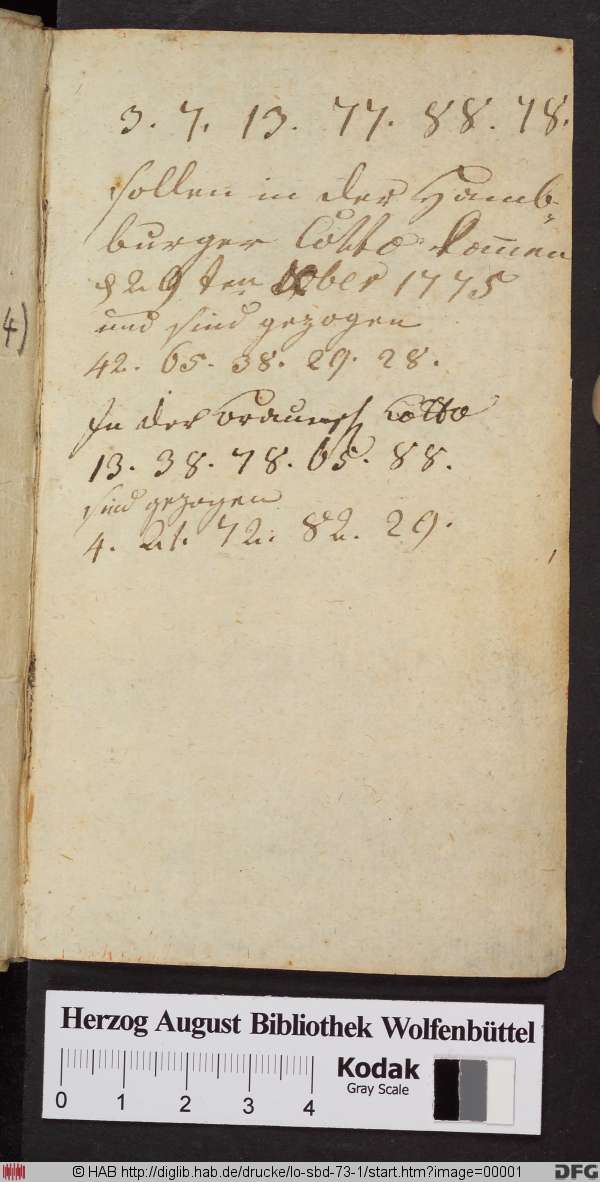 3. 7. 13. 77. 88. 78.
sollen in der Hamb-
burger Lotto kom̄en
d 29ten ber 1775
und sind gezogen
42. 65. 38. 29. 28.
In der Braunsch Lotto
13. 38. 78. 65. 88.
sind gezogen
4. 21. 72. 82. 29.
4)
Herzog August Bibliothek Wolfenbüttel
Kodak
Gray Scale
0 1 2 3 4
© HAB http://diglib.hab.de/drucke/lo-sbd-73-1/start.htm?image=00001
DFG